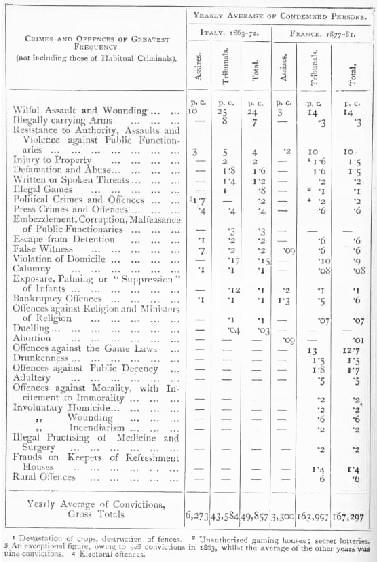 YEARLY AVERAGE OF CONDEMNED PERSONS.
CRIMES AND OFFENCES OF GREATEST FREQUENCY
(not including those of Habitual Criminals).
ITALY, 1863-72. FRANCE, 1877-81.
Assizes. Tribunals. Total. Assizes. Tribunals. Total.
p. c. p. c. p. c. p. c. p. c. p. c.
Wilful Assault and Wounding ... ... 10 25 24 3 14 14
Illegally carrying Arms ... — 8 7 — ·3 ·3
Resistance to Authority, Assaults and
Violence against Public Function-
aries ... 3 5 4 ·2 10 10
Injury to Property ... — 2 2 — ¹ 1·6 1·5
Defamation and Abuse ... — 1·8 1·6 — 1·6 1·5
Written or Spoken Threats ... — 1·4 1·2 — ·2 ·2
Illegal Games ... — 1 ·8 — ² ·1 ·1
Political Crimes and Offences ... ³1·7 — ·2 — ⁴ ·2 ·2
Press Crimes and Offences ... ·4 ·4 ·4 — ·6 ·6
Embezzlement, Corruption, Malfeasance
of Public Functionaries ... — ·3 ·3 — — —
Escape from Detention ... ·1 ·2 ·2 — ·6 ·6
False Witness ... ·7 ·2 ·2 ·09 ·6 ·6
Violation of Domicile ... — ·17 ·15 — ·10 ·9
Calumny ... ·1 ·1 ·1 — ·08 ·08
Exposure, Palming or "Suppression"
of Infants ... — ·12 ·1 ·2 ·1 ·1
Bankruptcy Offences ... ·1 ·1 ·1 1·3 ·5 ·6
Offences against Religion and Ministers
of Religion ... — ·1 ·1 — ·07 ·07
Duelling ... — ·04 ·03 — — —
Abortion ... — — — ·09 — ·01
Offences against the Game Laws ... — — — — 13 12·7
Drunkenness ... — — — — 1·5 1·5
Offences against Public Decency — — — — 1·8 1·7
Adultery ... — — — — ·5 ·5
Offences against Morality, with In-
citement to Immorality ... — — — — ·2 ·2
Involuntary Homicide ... — — — — ·2 ·2
„ Wounding ... — — — — ·6 ·6
„ Incendiarism ... — — — — ·2 ·2
Illegal Practising of Medicine and
Surgery ... — — — — ·2 ·2
Frauds on Keepers of Refreshment
Houses ... — — — — 1·4 1·4
Rural Offences ... — — — — 6 ·6
Yearly Average of Convictions,
Gross Totals 6,273 43,584 49,857 3,300 163,997 167,297
¹ Devastation of crops, destruction of fences. ² Unauthorised gaming houses; secret lotteries.
³ An exceptional figure, owing to convictions in 1863, whilst the average of the other years was
nine convictions. ⁴ Electoral offences.